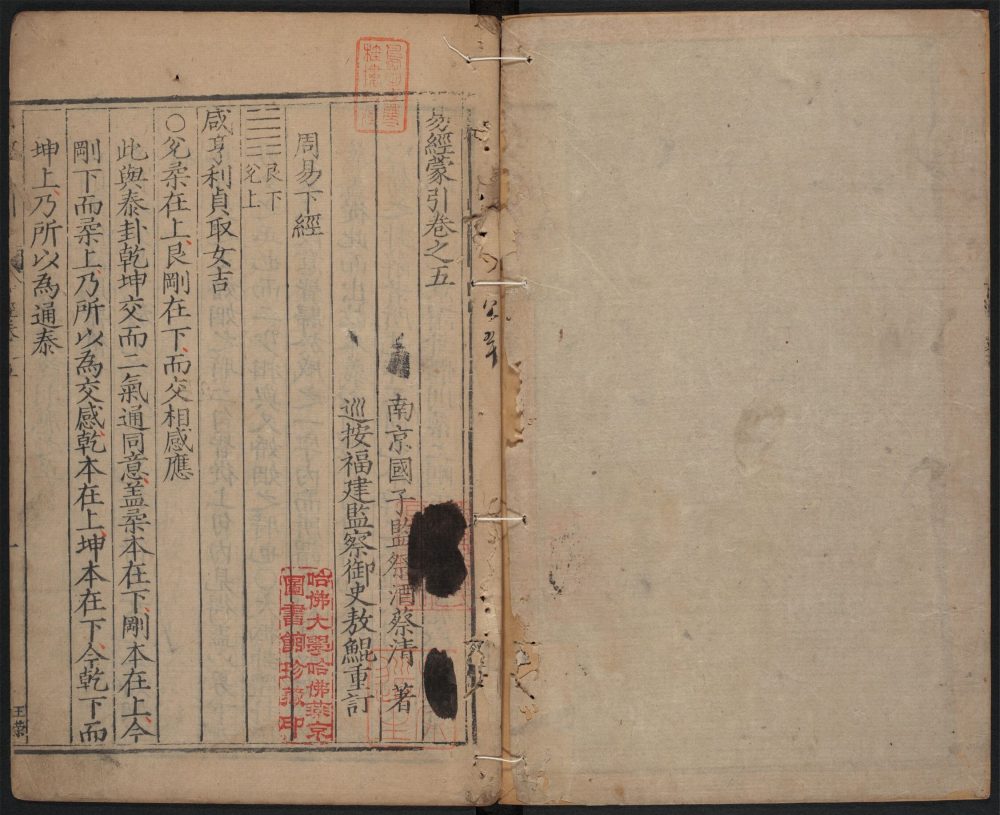 易經蒙引卷之五
南京國子監祭酒蔡清著
巡按福建監察御史敖鯤重訂
周易下經
艮下
兌上
咸亨利貞取女吉
○兌柔在上艮剛在下而交相感應
此與泰卦乾坤交而二氣通同意蓋柔本在下剛本在上今
剛下而柔上乃所以為交感乾本在上坤本在下今乾下而
坤上乃所以為通泰
哈佛大學哈佛燕京
圖書館珍藏印